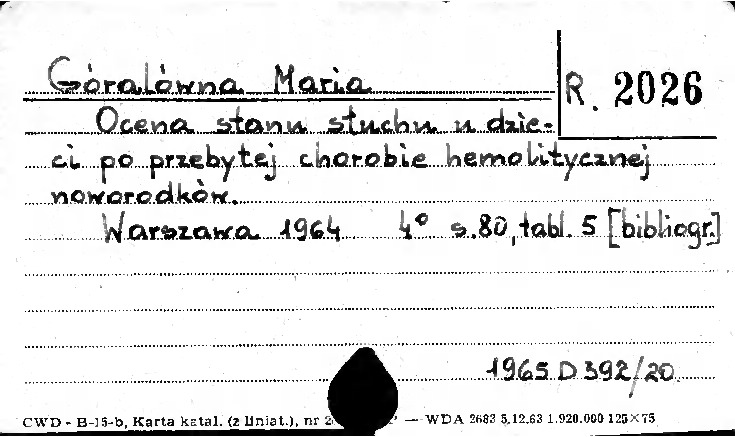 Góralówna Maria
R. 2026
Ocena stanu słuchu u dzie-
ci po przebytej chorobie hemolitycznej
noworodków.
Warszawa 1964 4° s. 80, tabl. 5 [bibliogr.]
1965 D 392/20
CWD - B-15-b, Karta katal. (z liniat.), nr — WDA 2683 5.12.63 1.920.000 125×75